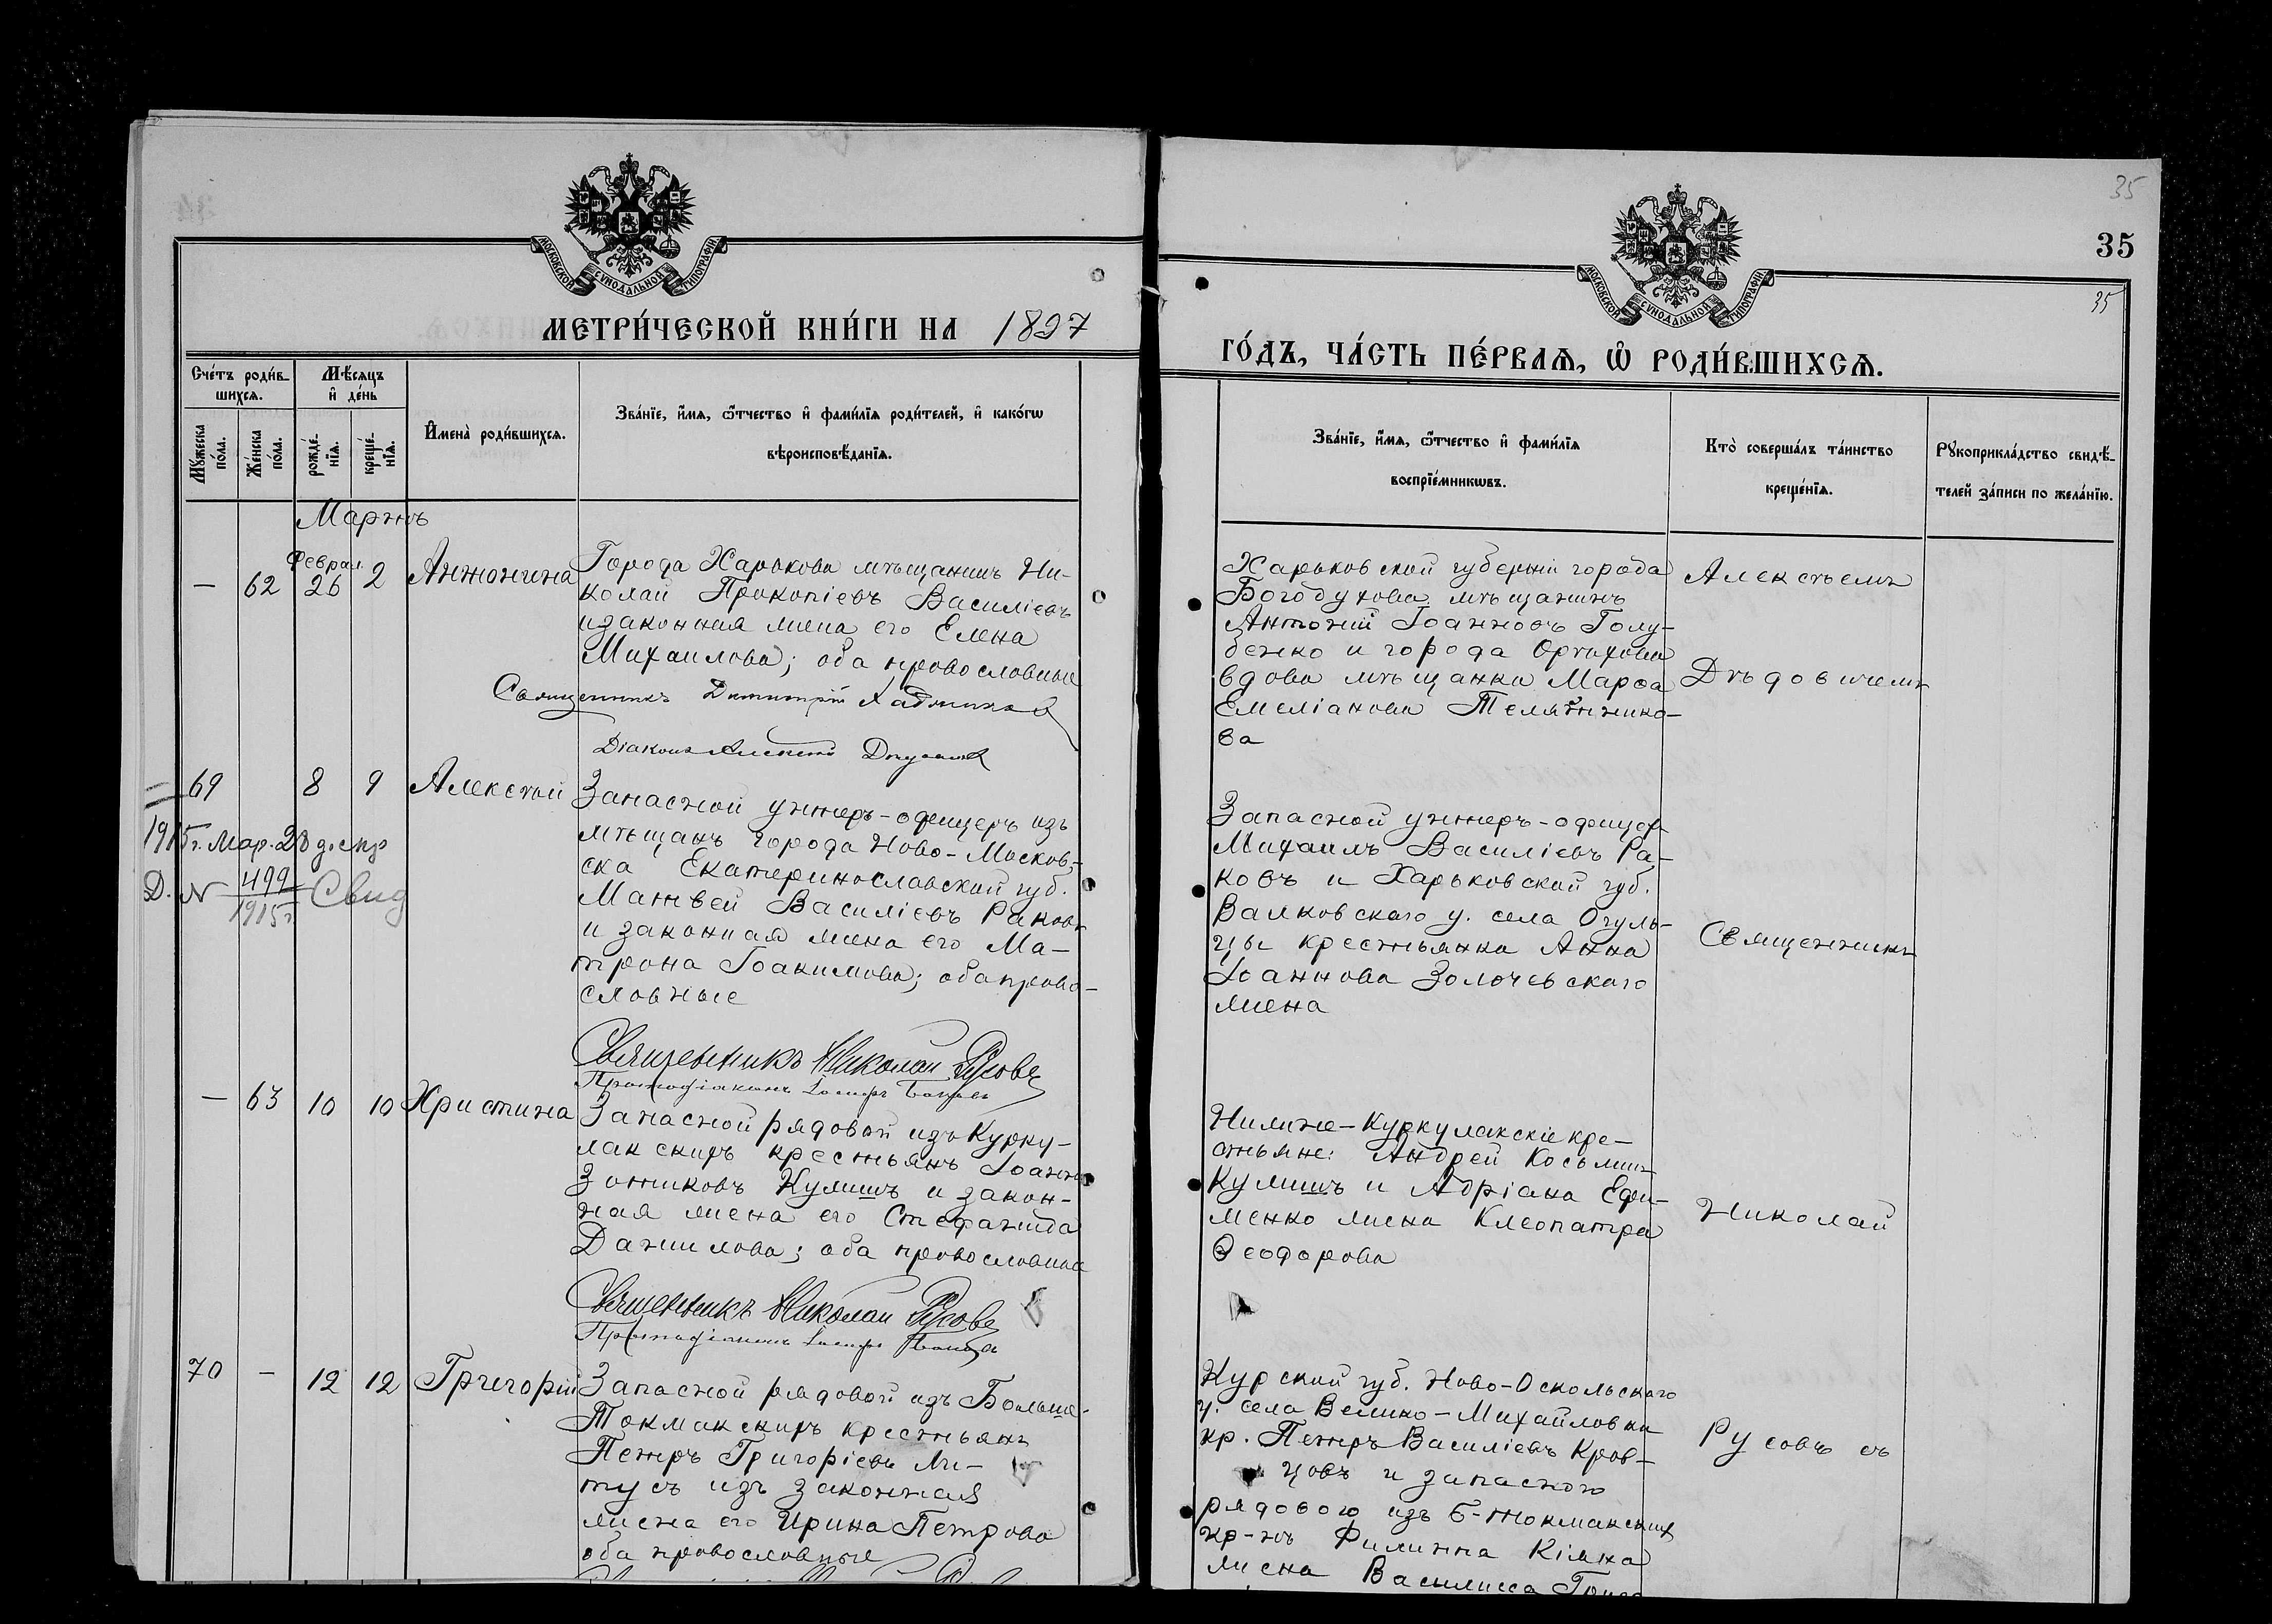 35
МОСКОВСКОЙ СѴНОДАЛЬНОЙ ТИПОГРАФІИ
МЕТРИ́ЧЕСКОЙ КНИ́ГИ НА 1897
Счéтъ роди́в-
шихся.
Мѣ́сяцъ
и҆ дéнь
Мꙋ́жеска
пóла.
Жéнска
пóла.
рождé-
нїя.
крещé-
нїя.
И҆менà роди́вшихся.
Звáнїе, и҆́мя, ѻ҆́тчество и҆ фами́лїя роди́телей, и҆ какóгѡ
вѣроисповѣ́данїя.
Мартъ
— 62 Феврал. 26 2 Антонина
Города Харькова мѣщанинъ Ни-
колай Прокопіевъ Василіевъ
и законная жена его Елена
Михаилова; оба православные
Священникъ Димитрій
Діаконъ Алексій
69 8 9 Алексѣй
Запасной унтеръ-офицеръ изъ
мѣщанъ города Ново-Москов-
ска Екатеринославской губ.
Матвей Василіевъ Раковъ
и законная жена его Ма-
трона Іоакимова; оба право-
славные
1915 г. Мар. 28 д.
Д. № 499
1915 г. Свид
Священникъ Николай Русовъ
Протодіаконъ Іосифъ
— 63 10 10 Христина
Запасной рядовой изъ Курку-
лакскихъ крестьянъ Іоаннъ
Зотиковъ Кулишъ и закон-
ная жена его Стефанида
Данилова; оба православные
Священникъ Николай Русовъ
Протодіаконъ Іосифъ
70 — 12 12 Григорій
Запасной рядовой изъ Больше-
Токмакскихъ крестьянъ
Петръ Григоріевъ Ли-
тусъ изъ законная
жена его Ирина Петрова
оба православные
35
35
35
МОСКОВСКОЙ СѴНОДАЛЬНОЙ ТИПОГРАФІИ
ГÓДЪ, ЧÁСТЬ ПÉРВАЯ, Ѡ҆ РОДИ́ВШИХСЯ.
Звáнїе, и҆́мя, ѻ҆́тчество и҆ фами́лїя
воспрїéмникѡвъ.
Ктò совершáлъ тáинство
крещéнїя.
Рꙋкоприклáдство свидѣ́-
телей зáписи по желáнїю.
Харьковской губерніи города
Богодухова мѣщанинъ
Антоній Іоанновъ Голу-
бенко и города Орѣхова
вдова мѣщанка Марѳа
Емеліанова Телятнико-
ва
Алексѣемъ
Дѣдовичемъ
Запасной унтеръ-офицеръ
Михаилъ Василіевъ Ра-
ковъ и Харьковской губ.
Валковскаго у. села Огуль-
цы крестьянка Анна
Іоаннова Золочевскаго
жена
Священникъ
Нижне-Куркулакскіе кре-
стьяне: Андрей Косьминъ
Кулишъ и Адріана Ефи-
менко жена Клеопатра
Ѳеодорова
Николай
Курской губ. Ново-Оскольскаго
у. села Велико-Михайловки
кр. Петръ Василіевъ Крав-
цовъ и запасного
рядового изъ Б-Токмакскихъ
кр-нъ Филиппа Кіяна
жена Василисса
Русовъ съ